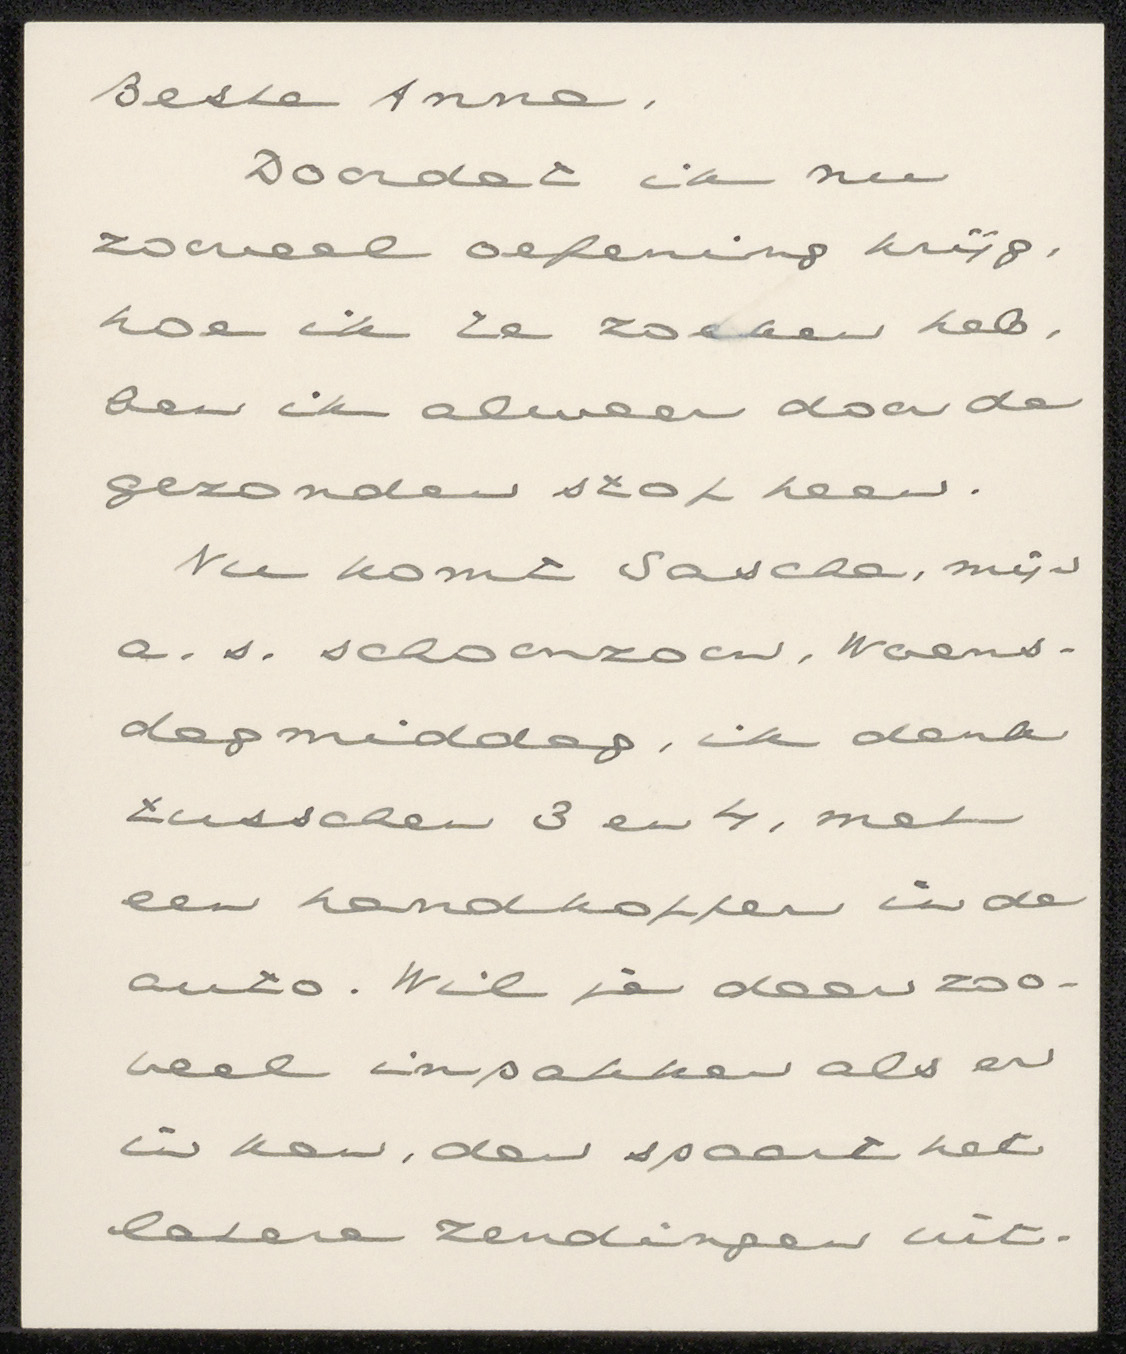 Beste Anna,
Doordat ik nu
zooveel oefening krijg,
hoe ik te zoeken heb,
ben ik alweer door de
gezonden stof heen.
Nu komt Sascha, mijn
a.s. schoonzoon, Woens-
dagmiddag, ik denk
tusschen 3 en 4, met
een handkoffer in de
auto. Wil je daar zoo-
veel inpakken als er
in kan, dan spaart het
latere zendingen uit.